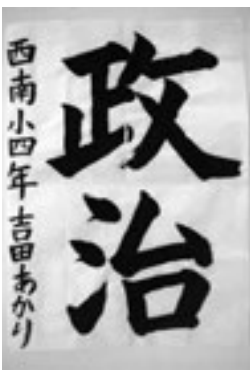 政治
西南小四年吉田あかり